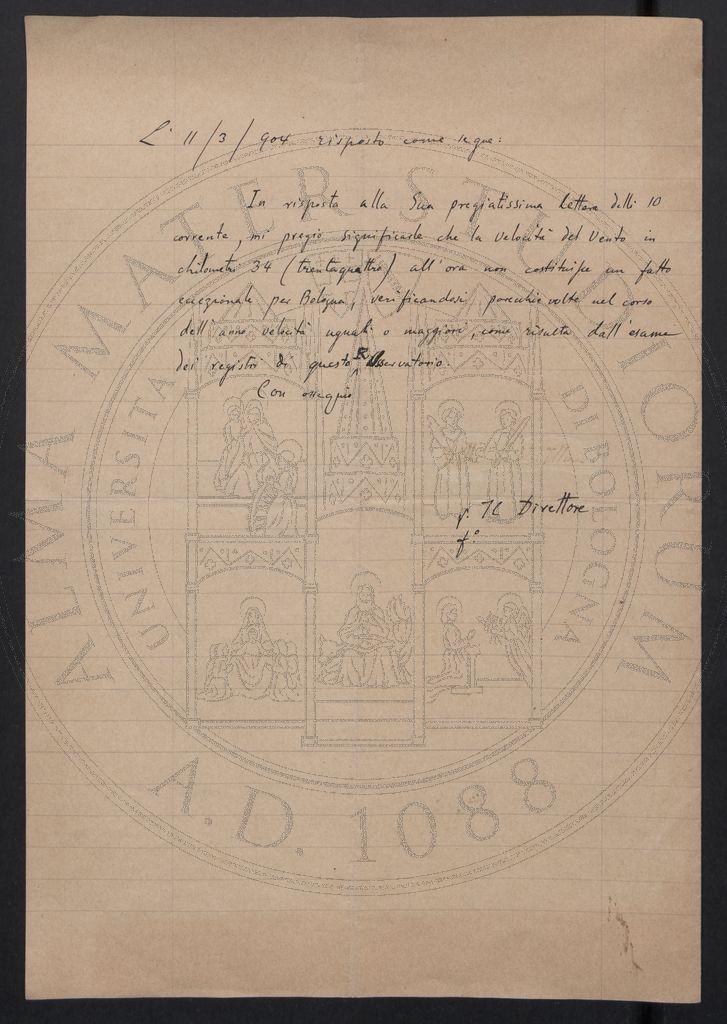 L' 11/3/904 risposto come segue:
In risposta alla Sua pregiatissima lettera delli 10
corrente, mi pregio significarle che la velocità del vento in
chilometri 34 (trentaquattro) all'ora non costituisce un fatto
eccezionale per Bologna, verificandosi, parecchie volte nel corso
dell'anno, velocità uguali o maggiori, come risulta dall'esame
dei registri di questo R. Osservatorio.
Con ossequio
p. Il Direttore
f.º
ALMA MATER STUDIORUM
UNIVERSITA DI BOLOGNA
A.D. 1088